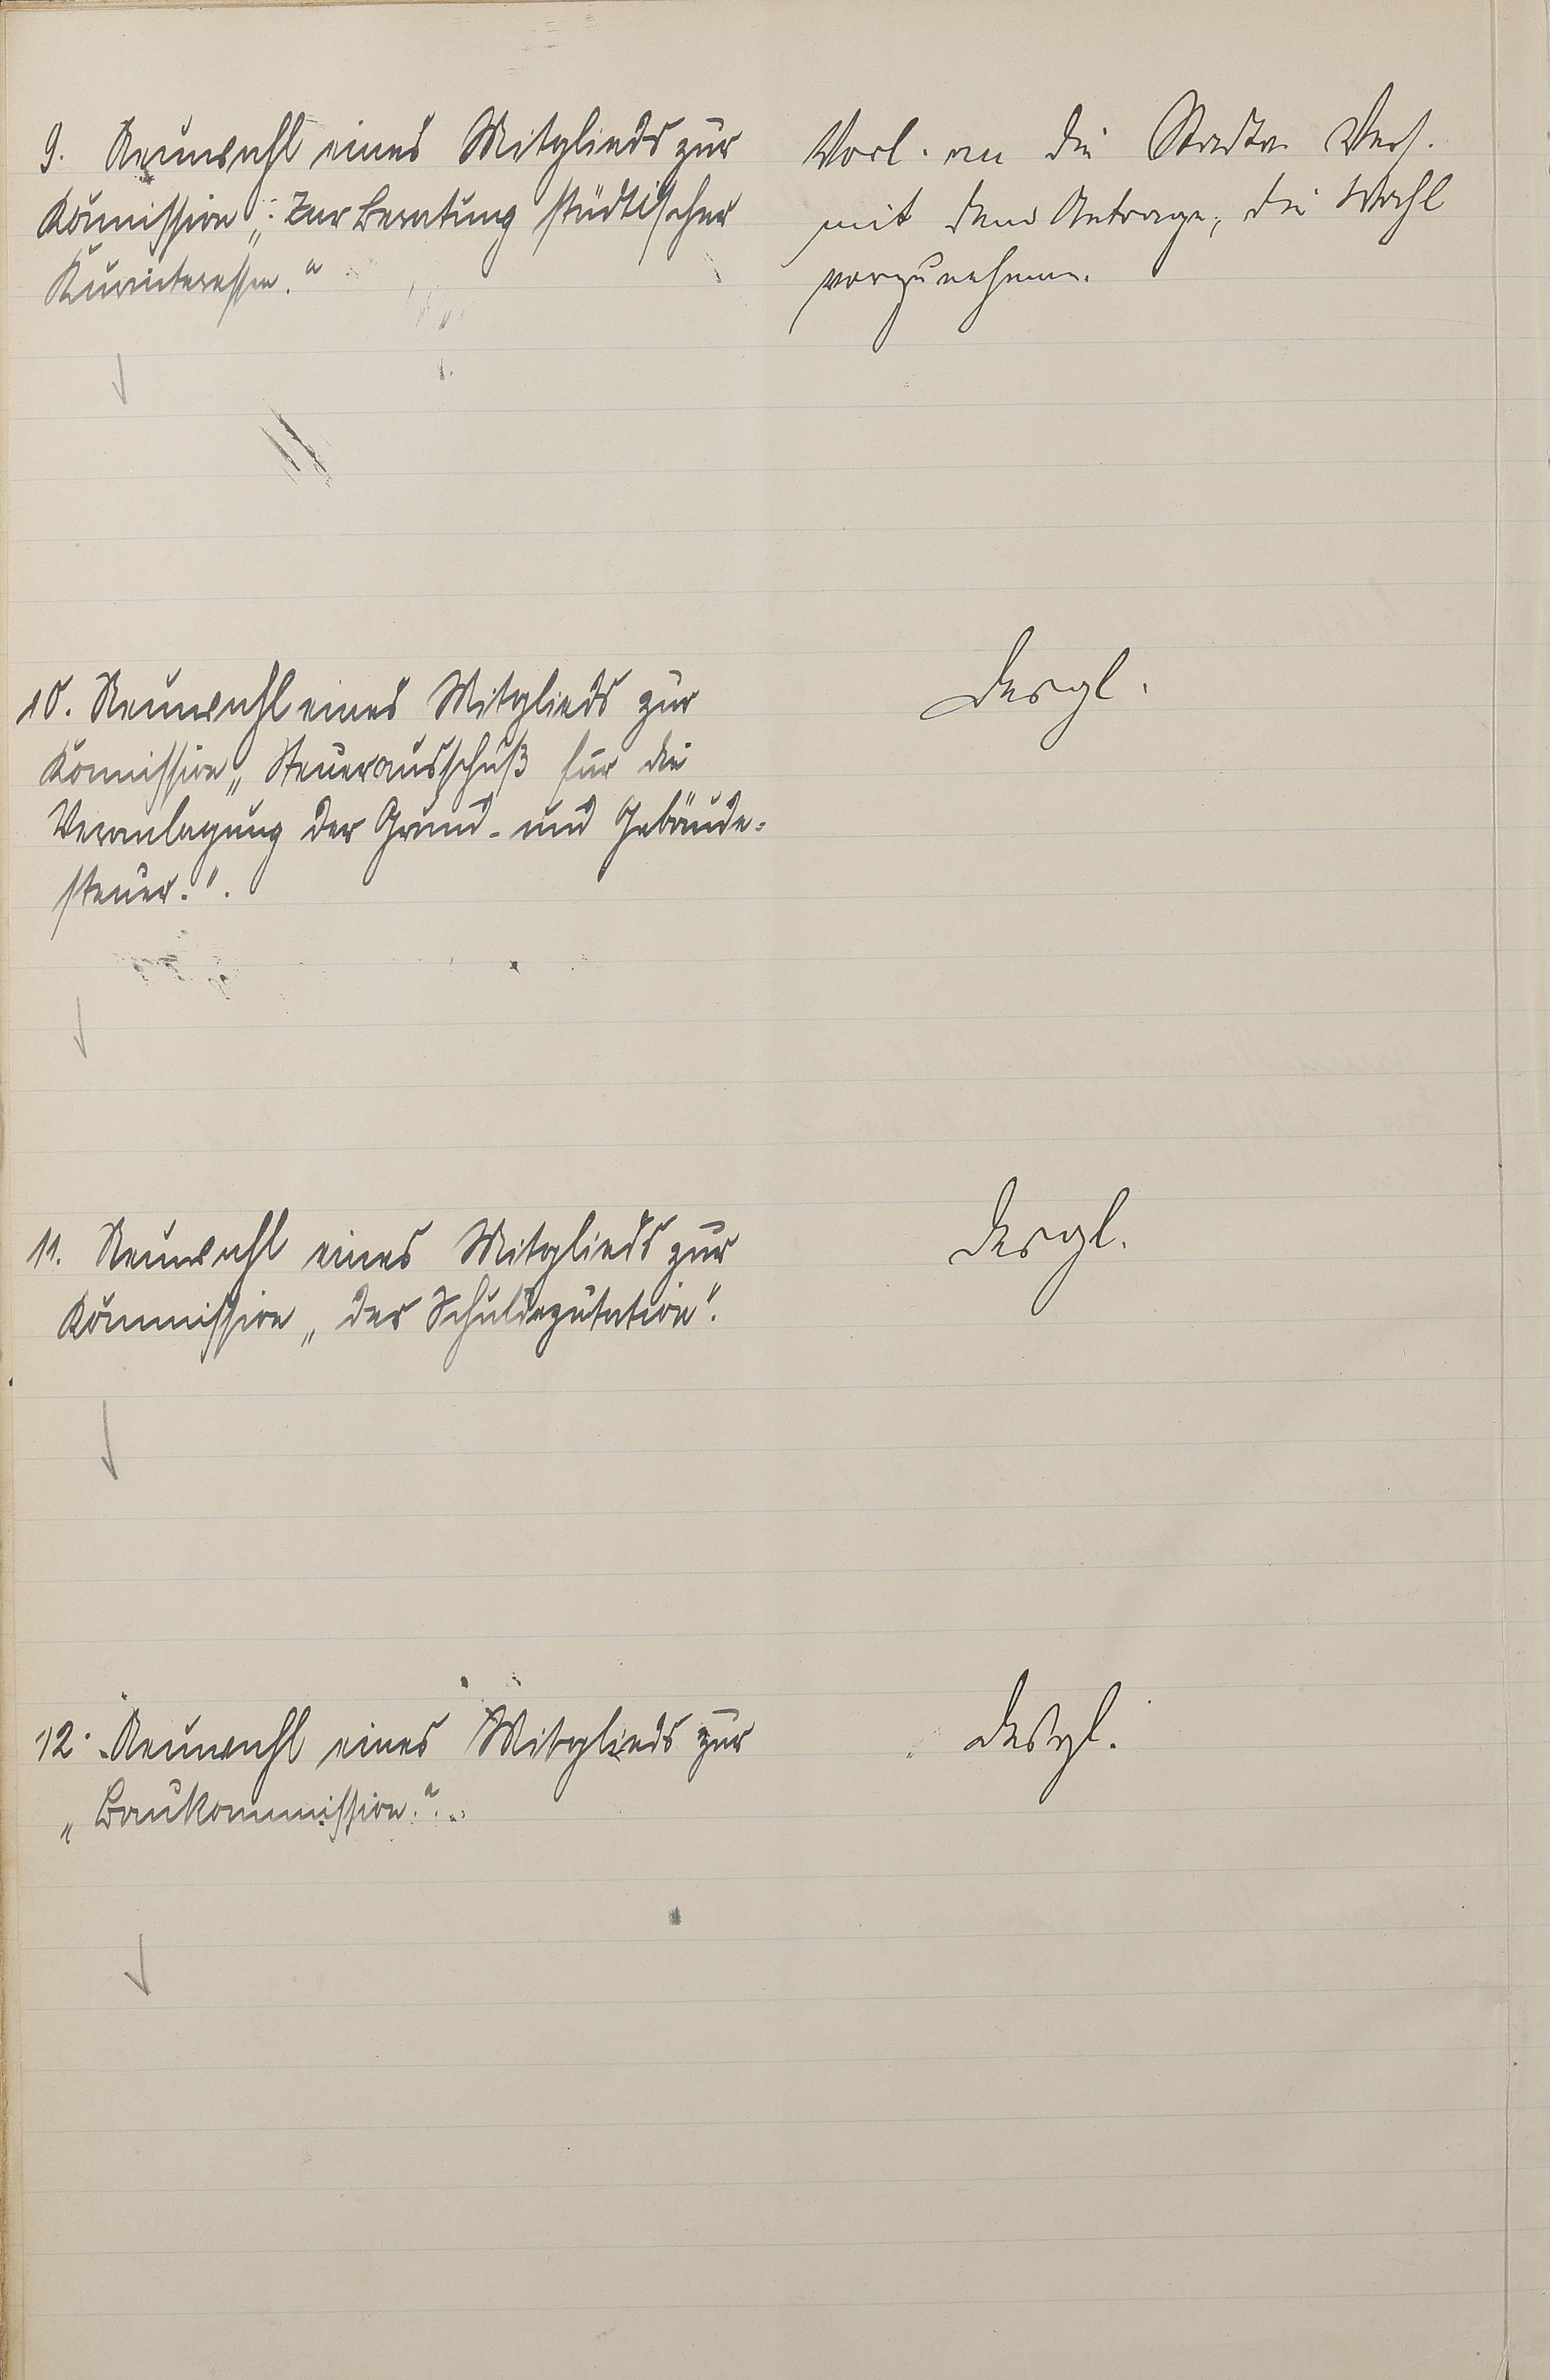 9. Neuwahl eines Mitglieds zur
Kommission „: Zur Beratung städtischer
Kurinteressen.“
Vorl. an die Stadtv. Vers.
mit dem Antrage, die Wahl
vorzunehmen.
10. Neuwahl eines Mitglieds zur
Kommission „Steuerausschuß für die
Veranlagung der Grund- und Gebäude-
steuer.“.
Desgl.
11. Neuwahl eines Mitglieds zur
Kommission „der Schuldeputation“.
Desgl.
12. Neuwahl eines Mitglieds zur
„Baukommission.“.
Desgl.